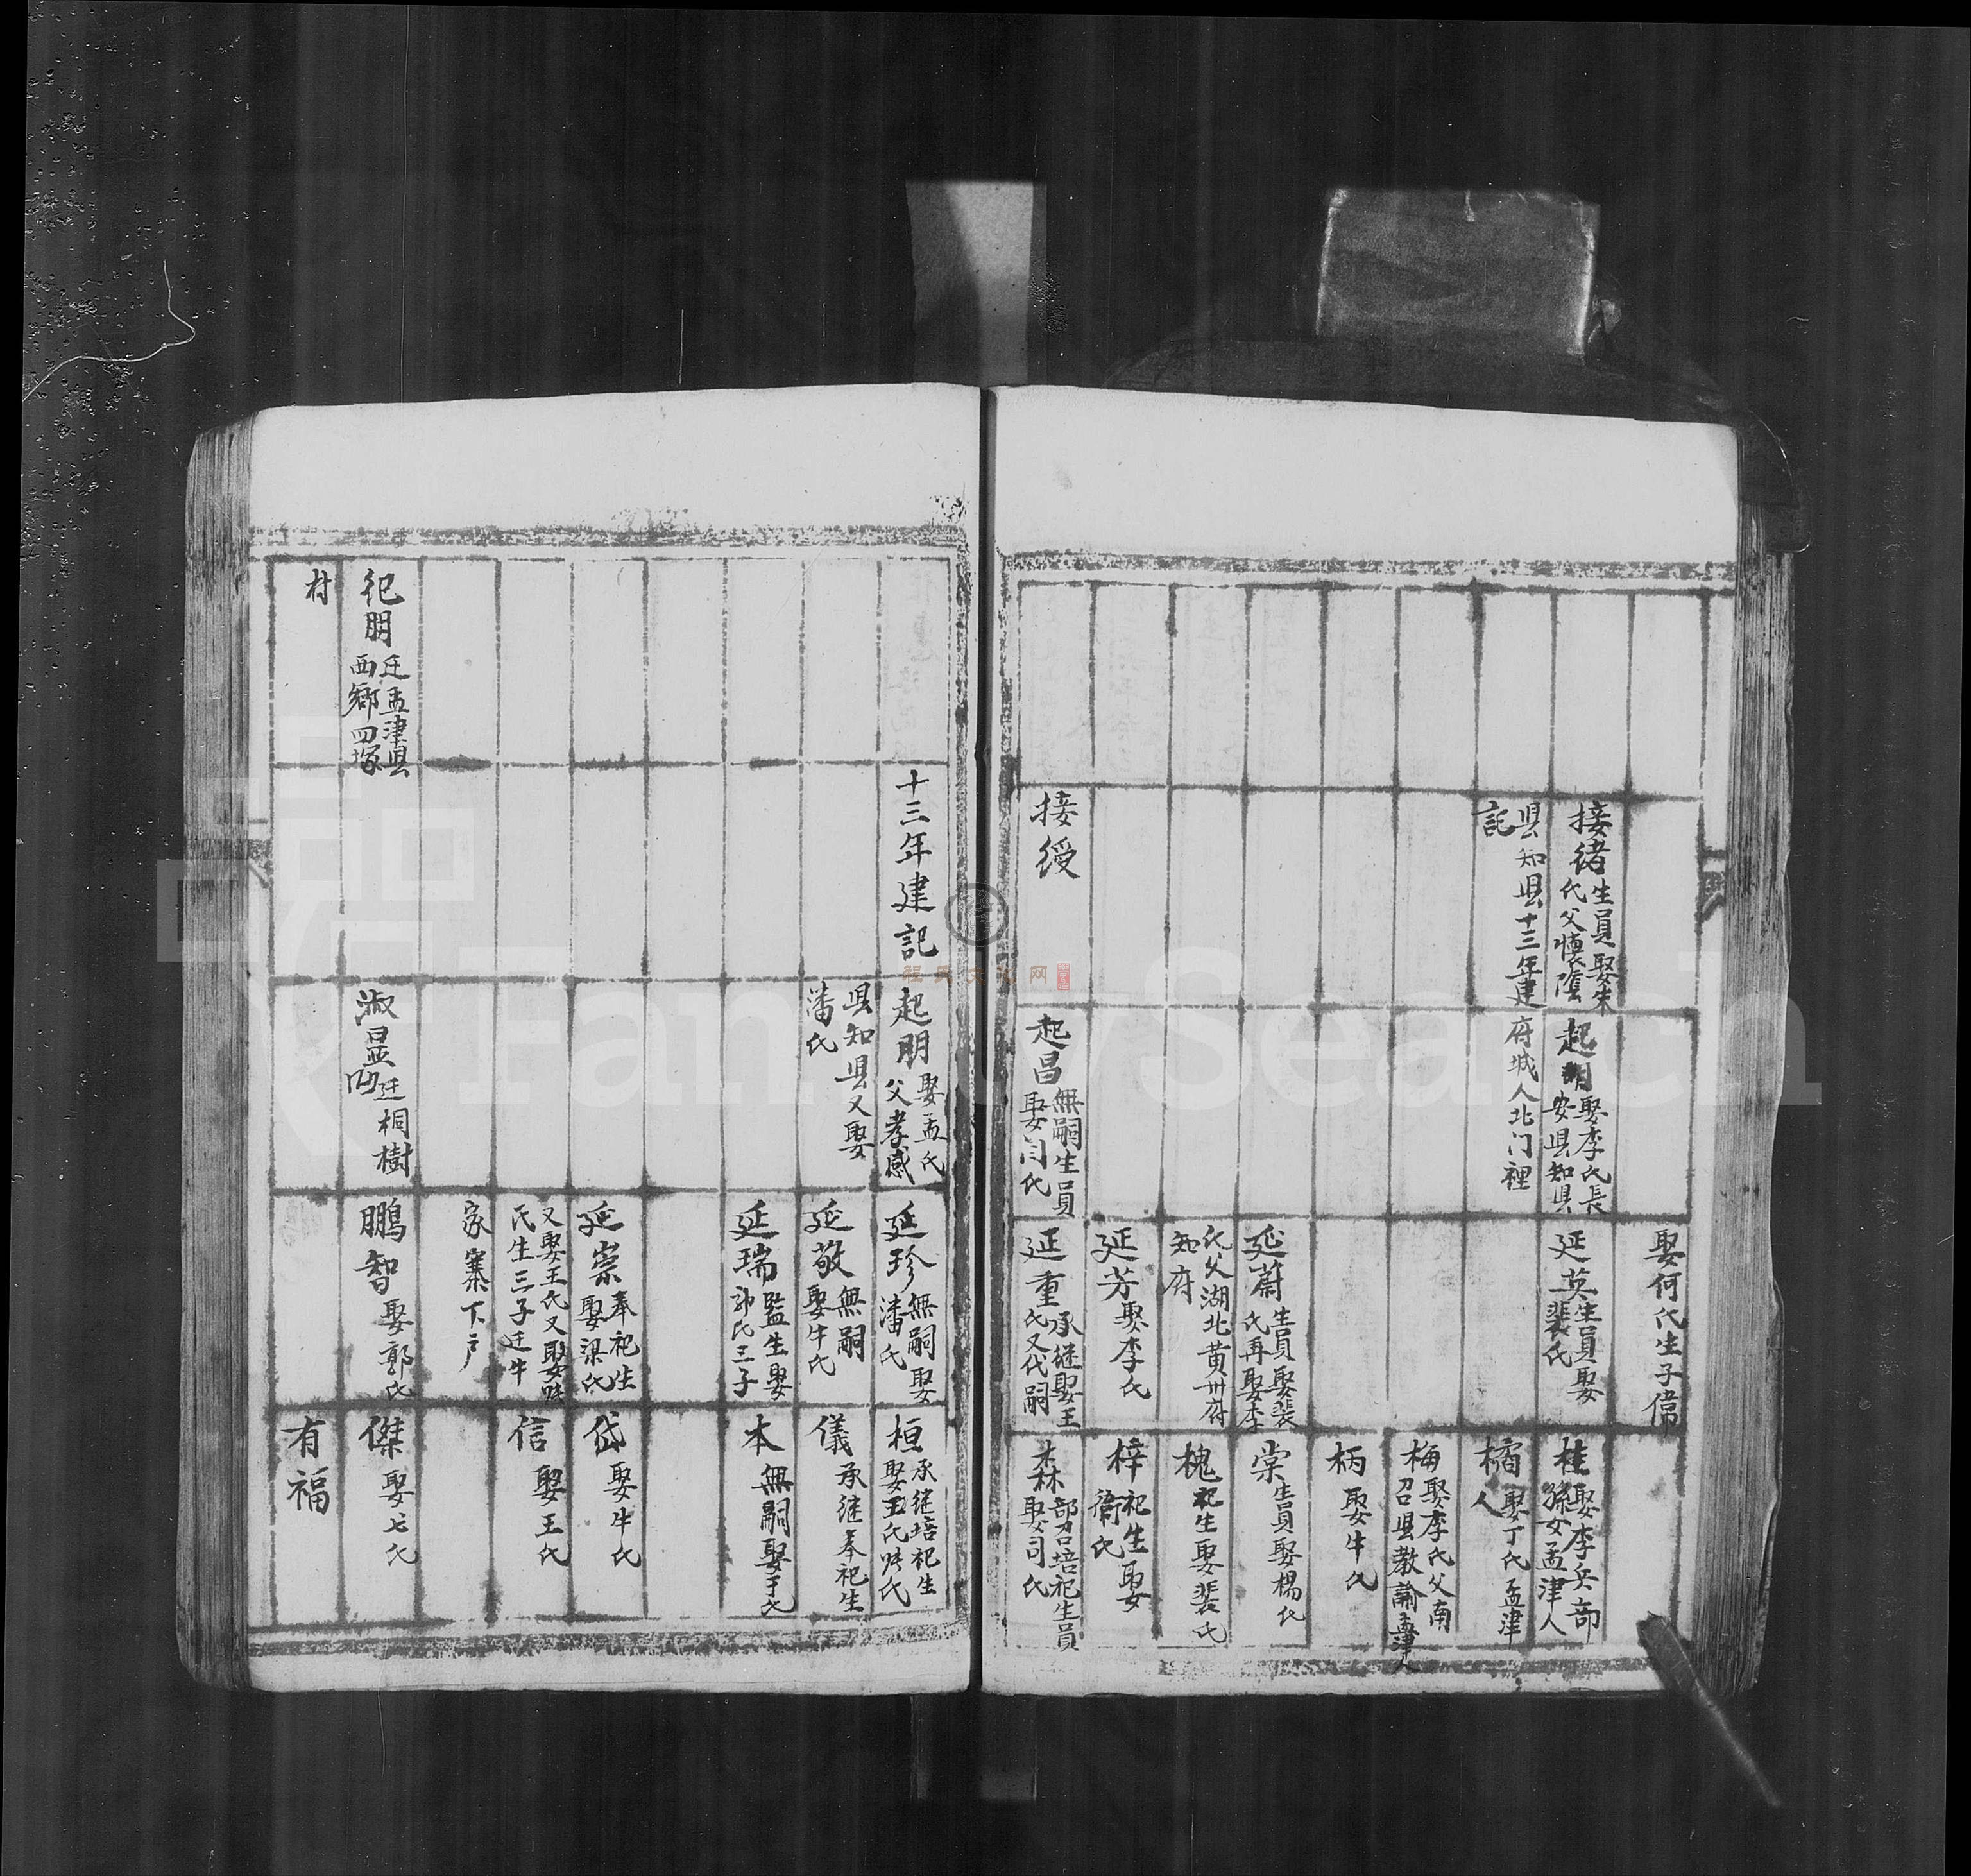 娶何氏生子偉
接緒生員娶朱
氏父懷陰
起明娶李氏長
安县知县
延英生員娶
裴氏
桂娶李兵部
孫女孟津人
县知县十三年建
記
府城人北门裡
榰娶丁氏孟津
人
梅娶李氏父南
召县教諭孟津人
柄娶牛氏
延蔚生員娶裴
氏再娶李
棠生員娶楊氏
氏父湖北黄州府
知府
槐祀生娶裴氏
延芳娶李氏
梓祀生娶
衞氏
接綬
起昌無嗣生員
娶闫氏
延重承継娶王
氏又代嗣
森部召培祀生員
娶司氏
十三年建記
起朋娶孟氏
父孝感
延珍無嗣娶
潘氏
桓承継培祀生
娶王氏
县知县又娶
潘氏
延敬無嗣
娶牛氏
儀承継奉祀生
延瑞監生娶
氏三子
本無嗣娶于氏
延崇奉祀生
娶梁氏
岱娶牛氏
又娶王氏又娶
氏生三子迁牛
信娶王氏
家寨下户
祀朋迁孟津县
西鄉四塚
淑昷迁桐樹
凹
鵬智娶郭氏
傑娶七氏
村
有福
FamilySearch